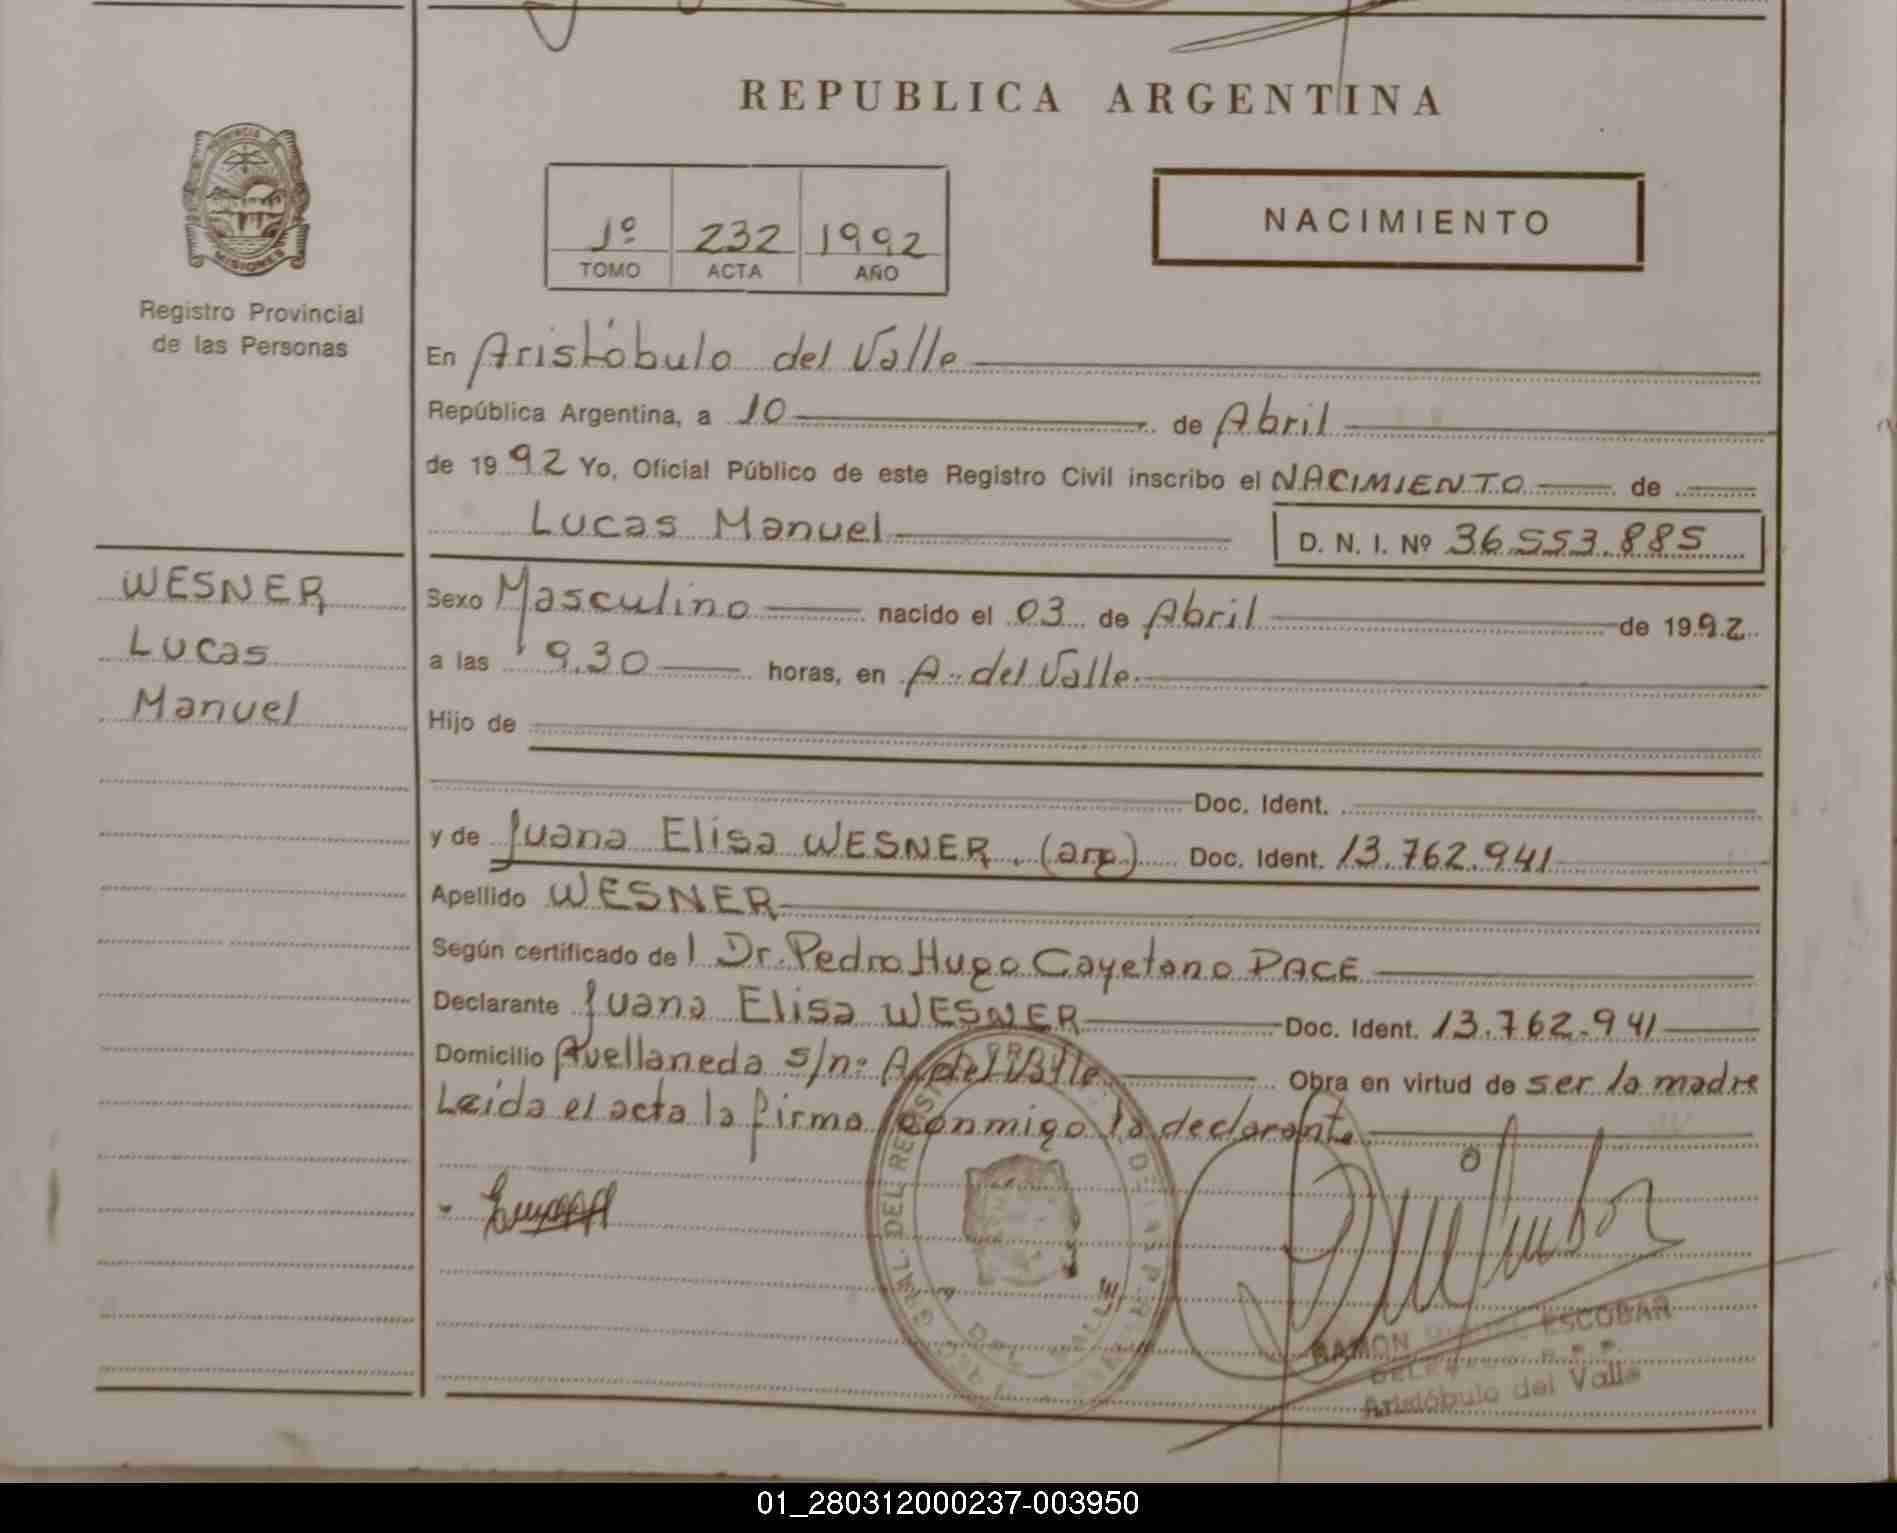 REPUBLICA ARGENTINA
PROVINCIA DE
MISIONES
Registro Provincial
de las Personas
1º 232 1992
TOMO ACTA AÑO
NACIMIENTO
En Aristóbulo del Valle
República Argentina, a 10 de Abril
de 1992 Yo, Oficial Público de este Registro Civil inscribo el NACIMIENTO de
Lucas Manuel D. N. I. Nº 36.553.885
WESNER
Lucas
Manuel
Sexo Masculino nacido el 03 de Abril de 1992
a las 9.30 horas, en A. del Valle
Hijo de
Doc. Ident.
y de Juana Elisa WESNER. (arg) Doc. Ident. 13.762.941
Apellido WESNER
Según certificado de l Dr. Pedro Hugo Cayetano PACE
Declarante Juana Elisa WESNER Doc. Ident. 13.762.941
Domicilio Avellaneda s/nº A. del Valle Obra en virtud de ser la madre
Leida el acta la firma conmigo la declarante
DEL VALLE
RAMON ESCOBAR
Aristóbulo del Valle
01_280312000237-003950